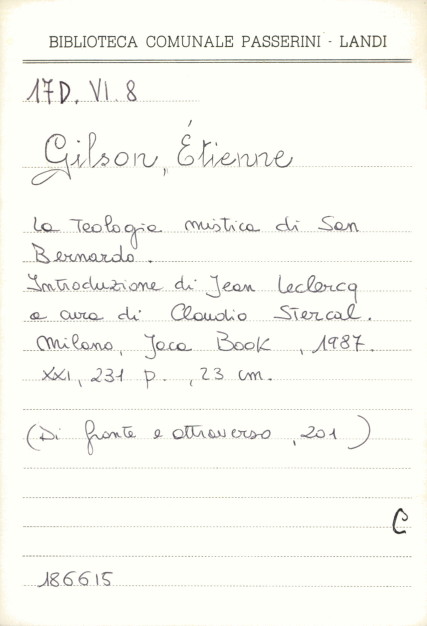 BIBLIOTECA COMUNALE PASSERINI - LANDI
17D. VI. 8
Gilson, Étienne
La Teologia mistica di San
Bernardo.
Introduzione di Jean Leclercq
a cura di Claudio Stercal.
Milano, Jaca Book, 1987.
XXI, 231 p., 23 cm.
(Di fronte e attraverso, 201)
C
186615